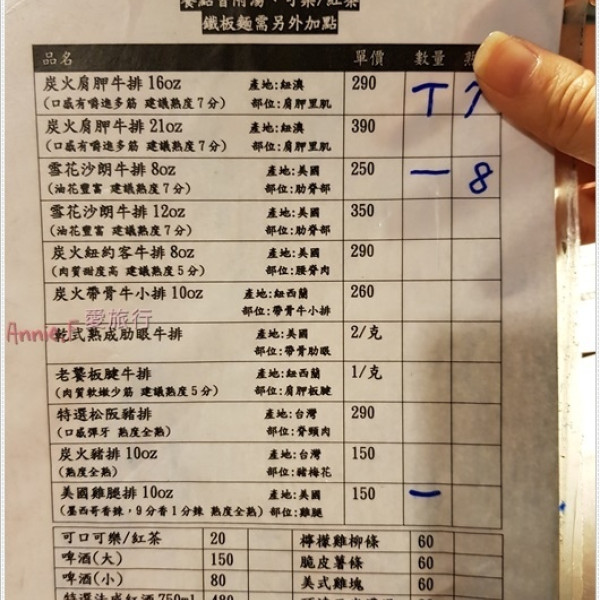 餐點皆附湯、可樂/紅茶
鐵板麵需另外加點
品名 單價 數量 熟
炭火肩胛牛排 16oz 產地:紐澳 290 T 7
(口感有嚼進多筋 建議熟度7分) 部位:肩胛里肌
炭火肩胛牛排 21oz 產地:紐澳 390
(口感有嚼進多筋 建議熟度7分) 部位:肩胛里肌
雪花沙朗牛排 8oz 產地:美國 250 一 8
(油花豐富 建議熟度7分) 部位:肋脊部
雪花沙朗牛排 12oz 產地:美國 350
(油花豐富 建議熟度7分) 部位:肋脊部
炭火紐約客牛排 8oz 產地:美國 290
(肉質甜度高 建議熟度5分) 部位:腰脊肉
炭火帶骨牛小排 10oz 產地:紐西蘭 260
部位:帶骨牛小排
Annie F 愛旅行
乾式熟成肋眼牛排 產地:美國 2/克
部位:帶骨肋眼
老饕板腱牛排 產地:紐西蘭 1/克
(肉質軟嫩少筋 建議熟度5分) 部位:肩胛板腱
特選松阪豬排 產地:台灣 290
(口感彈牙 熟度全熟) 部位:脊頸肉
炭火豬排 10oz 產地:台灣 150
(熟度全熟) 部位:豬梅花
美國雞腿排 10oz 產地:美國 150 一
(墨西哥香辣,9分香1分辣 熟度全熟) 部位:雞腿
可口可樂/紅茶 20 檸檬雞柳條 60
啤酒(大) 150 脆皮薯條 60
啤酒(小) 80 美式雞塊 60
750ml 480 60